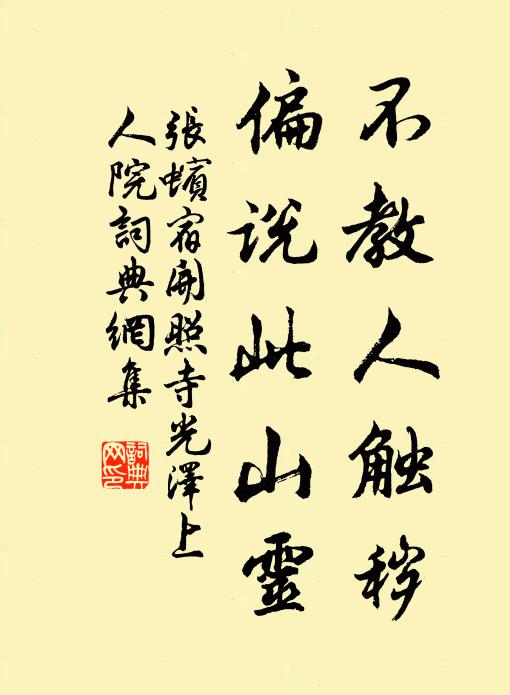 不教人触秽
偏说此山靈
張蠙宿開照寺光澤上
人院詞典網集
詞典網印